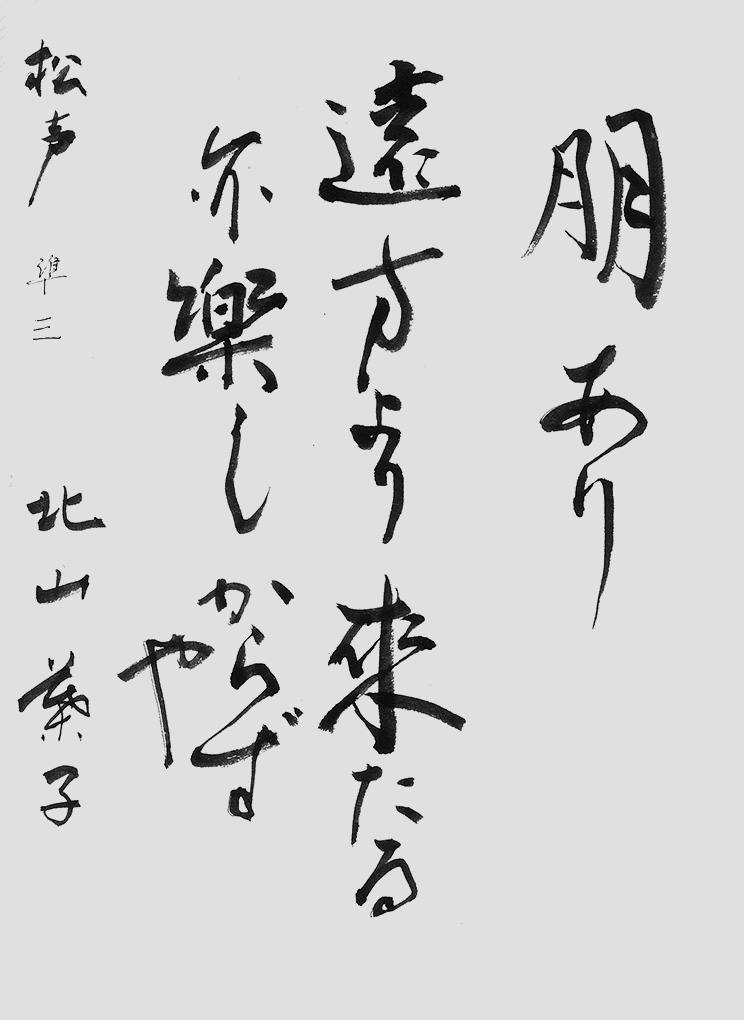 朋あり
遠方より來たる
亦樂しからず
や
松声 準三 北山葉子